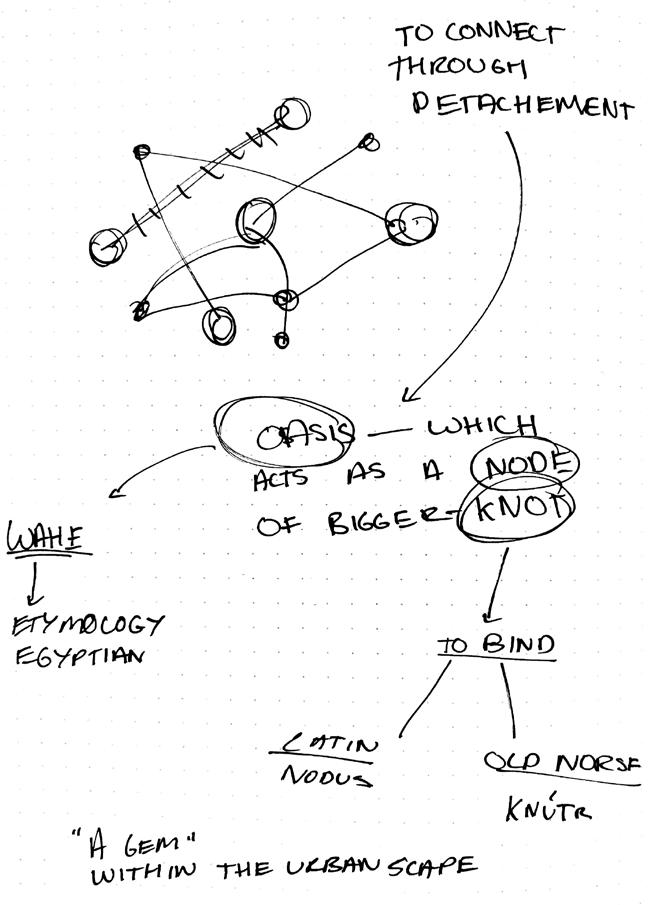 TO CONNECT
THROUGH
DETACHEMENT
OASIS — WHICH
ACTS AS A NODE
OF BIGGER KNOT
WAHE
ETYMOLOGY
EGYPTIAN
TO BIND
LATIN
NODUS
OLD NORSE
KNÚTR
"A GEM"
WITHIN THE URBANSCAPE